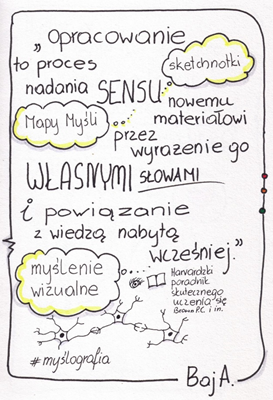 „Opracowanie
to proces
sketchnotki
nadania SENSU
nowemu
Mapy Myśli
materiałowi
przez
wyrażenie go
WŁASNYMI SŁOWAMI
i powiązanie
z wiedzą nabytą
wcześniej.”
myślenie
wizualne
Harvardzki
poradnik
skutecznego
uczenia się
Brown P.C. i in.
#myślografia
Baj A.